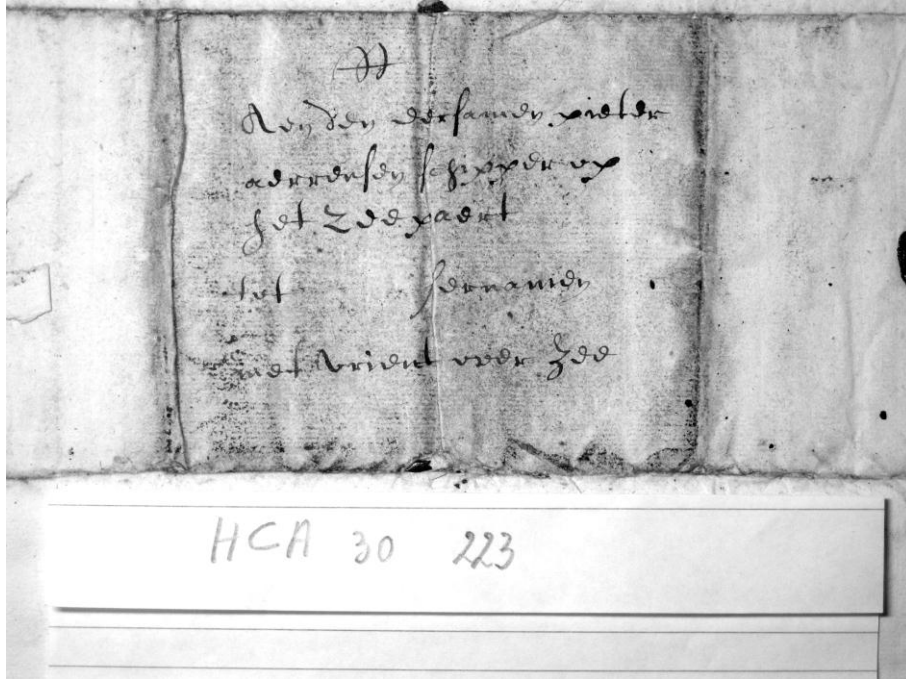 Aen den eersamen pieter
aerrensen schipper op
het Zeepaert
tot sernamen
met vrient over Zee
HCA 30 223